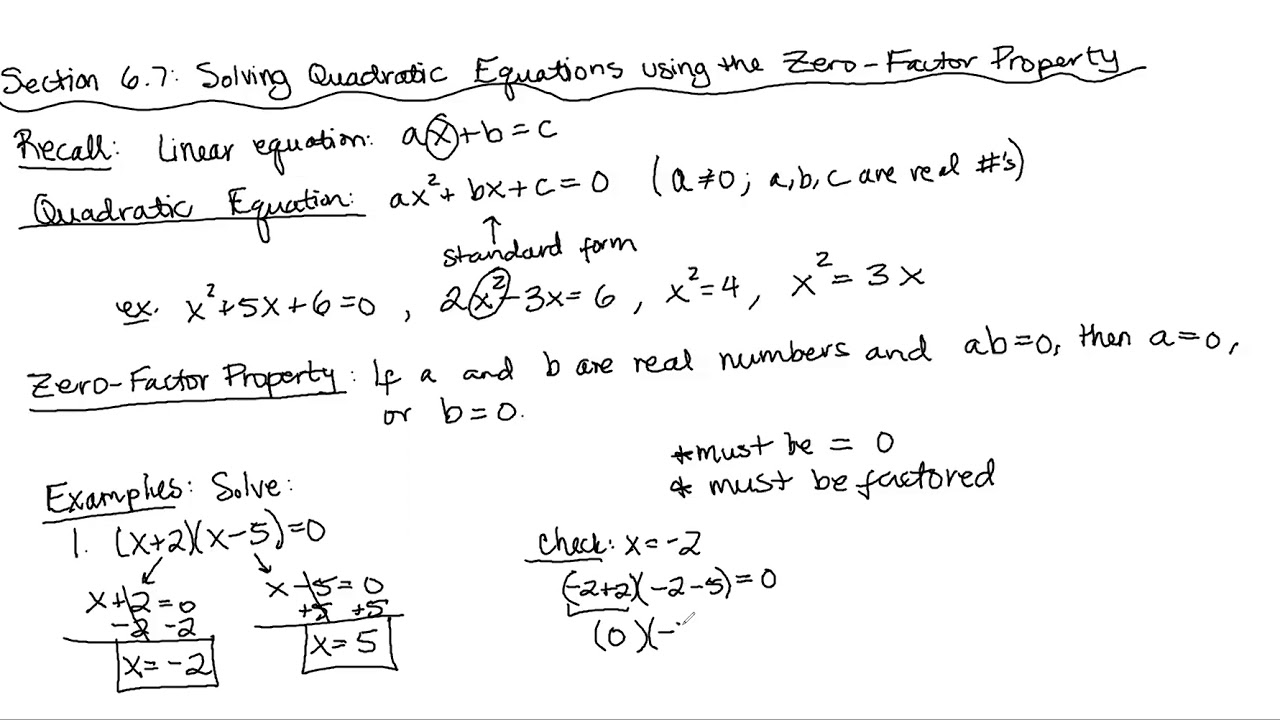 Section 6.7: Solving Quadratic Equations using the Zero-Factor Property
Recall: Linear equation: ax+b=c
Quadratic Equation: ax²+bx+c=0 (a≠0; a,b,c are real #'s)
↑
standard form
ex. x²+5x+6=0, 2x²-3x=6, x²=4, x²=3x
Zero-Factor Property: If a and b are real numbers and ab=0, then a=0,
or b=0.
*must be = 0
* must be factored
Examples: Solve:
1. (x+2)(x-5)=0
x+2=0
-2 -2
x=-2
x-5=0
+5 +5
x=5
Check: x=-2
(-2+2)(-2-5)=0
(0)(-